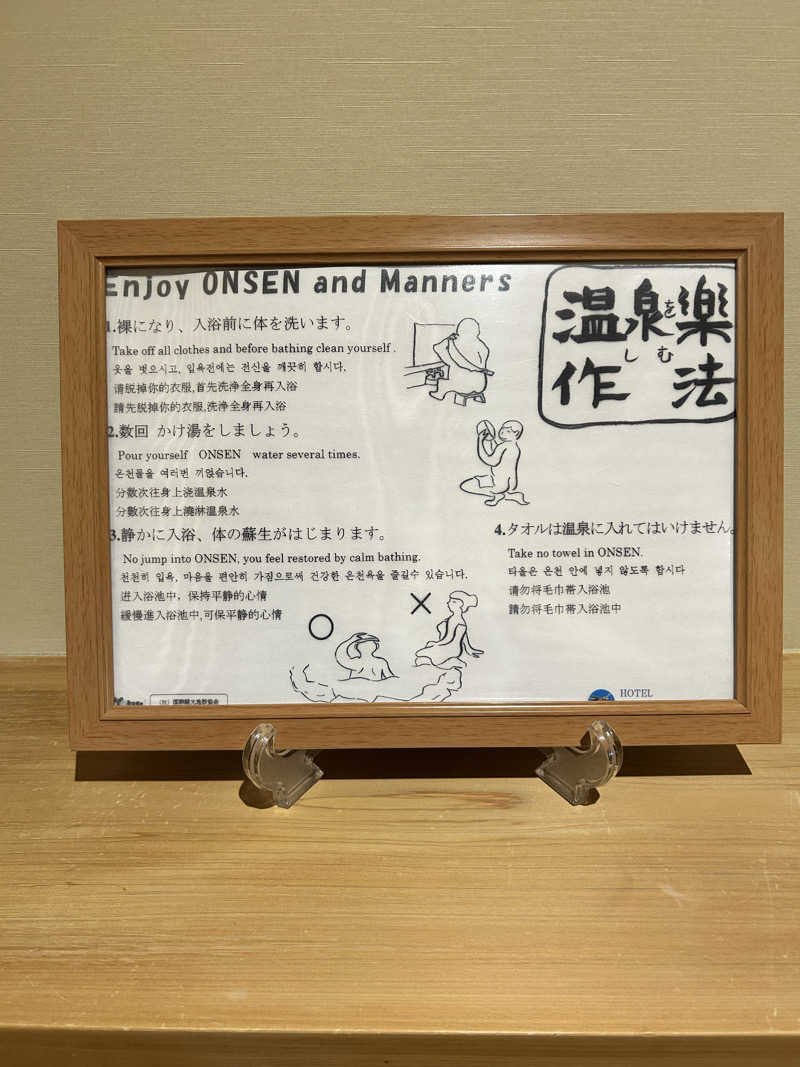 Enjoy ONSEN and Manners
温泉を楽しむ
作法
1.裸になり、入浴前に体を洗います。
Take off all clothes and before bathing clean yourself.
옷을 벗으시고, 입욕전에는 전신을 깨끗히 합시다.
请脱掉你的衣服,首先洗净全身再入浴
請先脱掉你的衣服,洗浄全身再入浴
2.数回 かけ湯をしましょう。
Pour yourself ONSEN water several times.
온천물을 여러번 끼얹습니다.
分数次往身上浇温泉水
分數次往身上澆淋温泉水
3.静かに入浴、体の蘇生がはじまります。
No jump into ONSEN, you feel restored by calm bathing.
천천히 입욕, 마음을 편안히 가짐으로써 건강한 온천욕을 즐길수 있습니다.
进入浴池中，保持平静的心情
緩慢進入浴池中,可保平静的心情
4.タオルは温泉に入れてはいけません。
Take no towel in ONSEN.
타올은 온천 안에 넣지 않도록 합시다
请勿将毛巾带入浴池
請勿将毛巾帯入浴池中
HOTEL